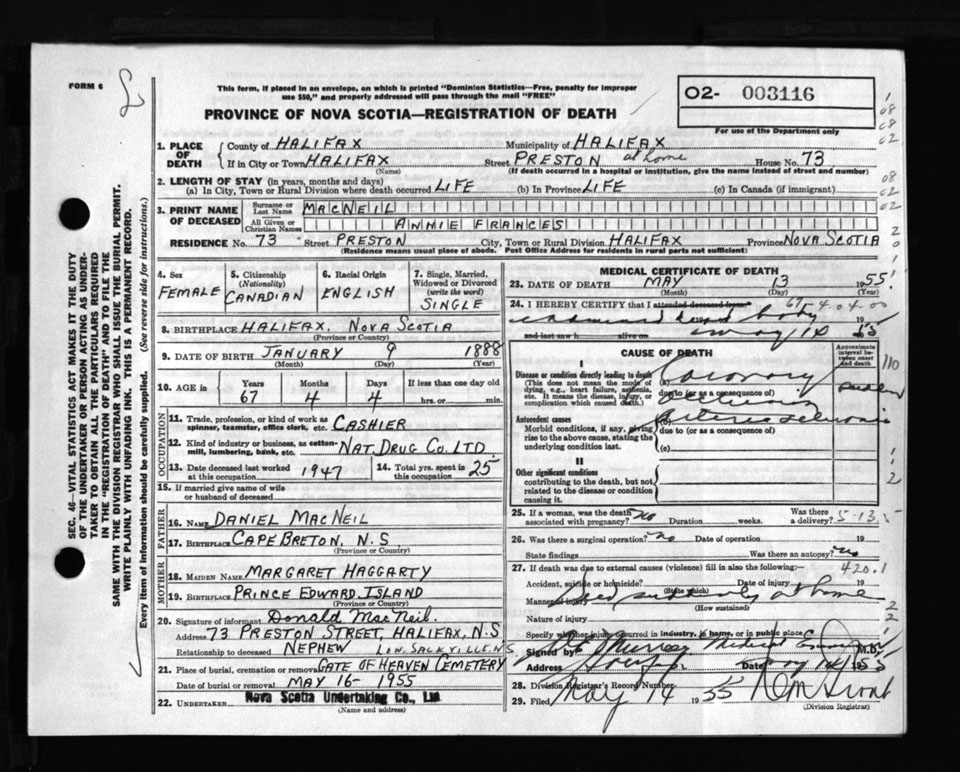 FORM 6
This form, if placed in an envelope, on which is printed "Dominion Statistics—Free, penalty for improper
use $50," and properly addressed will pass through the mail "FREE"
PROVINCE OF NOVA SCOTIA—REGISTRATION OF DEATH
02- 003116
For use of the Department only
1. PLACE OF DEATH
County of HALIFAX Municipality of HALIFAX
If in City or Town HALIFAX Street PRESTON at home House No. 73
(Name) (If death occurred in a hospital or institution, give the name instead of street and number)
2. LENGTH OF STAY (in years, months and days)
(a) In City, Town or Rural Division where death occurred LIFE (b) In Province LIFE (c) In Canada (if immigrant)
3. PRINT NAME OF DECEASED
Surname or Last Name MACNEIL
All Given or Christian Names ANNIE FRANCES
RESIDENCE No. 73 Street PRESTON City, Town or Rural Division HALIFAX Province NOVA SCOTIA
(Residence means usual place of abode. Post Office Address for residents in rural parts not sufficient)
4. Sex FEMALE
5. Citizenship (Nationality) CANADIAN
6. Racial Origin ENGLISH
7. Single, Married, Widowed or Divorced (write the word) SINGLE
8. BIRTHPLACE HALIFAX, NOVA SCOTIA
(Province or Country)
9. DATE OF BIRTH JANUARY 9 1888
(Month) (Day) (Year)
10. AGE Years 67 Months 4 Days 4 If less than one day old hrs. or min.
OCCUPATION
11. Trade, profession, or kind of work as spinner, teamster, office clerk, etc. CASHIER
12. Kind of industry or business, as cotton-mill, lumbering, bank, etc. NAT. DRUG CO. LTD.
13. Date deceased last worked at this occupation 1947 14. Total yrs. spent in this occupation 25
15. If married give name of wife or husband of deceased
FATHER
16. NAME DANIEL MACNEIL
17. BIRTHPLACE CAPE BRETON, N.S
(Province or Country)
MOTHER
18. MAIDEN NAME MARGARET HAGGARTY
19. BIRTHPLACE PRINCE EDWARD ISLAND
(Province or Country)
20. Signature of informant Donald MacNeil.
Address 73 PRESTON STREET, HALIFAX, N.S.
Relationship to deceased NEPHEW LOW. SACKVILLE N.S.
21. Place of burial, cremation or removal GATE OF HEAVEN CEMETERY
Date of burial or removal MAY 16- 1955
22. UNDERTAKER Nova Scotia Undertaking Co., Ltd.
(Name and address)
MEDICAL CERTIFICATE OF DEATH
23. DATE OF DEATH MAY 13 1955
(Month) (Day) (Year)
24. I HEREBY CERTIFY that I attended deceased from
body 19
and last saw h alive on May 14 55
CAUSE OF DEATH
Approximate interval between onset and death
I
Disease or condition directly leading to death
(This does not mean the mode of dying, e.g., heart failure, asthenia, etc. It means the disease, injury, or complication which caused death.)
(a) Coronary
due to (or as a consequence of)
Antecedent causes
Morbid conditions, if any, giving rise to the above cause, stating the underlying condition last.
(b)
due to (or as a consequence of)
(c)
II
Other significant conditions
contributing to the death, but not related to the disease or condition causing it.
25. If a woman, was the death associated with pregnancy? no Duration weeks. Was there a delivery?
26. Was there a surgical operation? no Date of operation 19
State findings Was there an autopsy? no
27. If death was due to external causes (violence) fill in also the following: 420.1
Accident, suicide or homicide? Date of injury 19
(State which)
Manner of injury Died suddenly at home
(How sustained)
Nature of injury
Specify whether injury occurred in industry, in home, or in public place
Signed by Murray Medical M.D.
Address Date May 14 1955
28. Division Registrar's Record Number
29. Filed May 14 1955
(Division Registrar)
SEC. 46—VITAL STATISTICS ACT MAKES IT THE DUTY
OF THE UNDERTAKER OR PERSON ACTING AS UNDER-
TAKER TO OBTAIN ALL THE PARTICULARS REQUIRED
IN THE "REGISTRATION OF DEATH" AND TO FILE THE
SAME WITH THE DIVISION REGISTRAR WHO SHALL ISSUE THE BURIAL PERMIT.
WRITE PLAINLY WITH UNFADING INK. THIS IS A PERMANENT RECORD.
Every item of information should be carefully supplied. (See reverse side for instructions.)